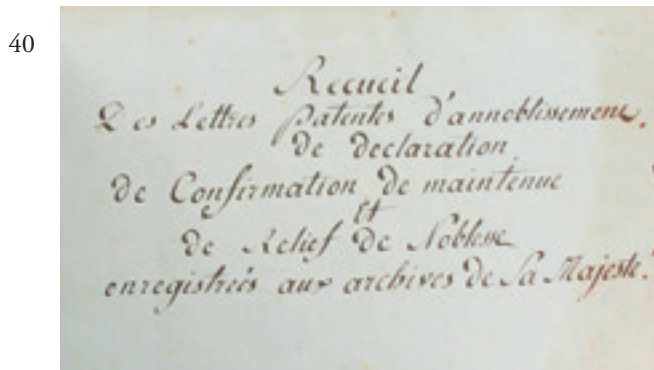 40
Recueil
Des Lettres patentes d'annoblissement.
de declaration
de Confirmation de maintenue
et
de Relief de Noblesse
enregistreés aux archives de Sa Majesté.